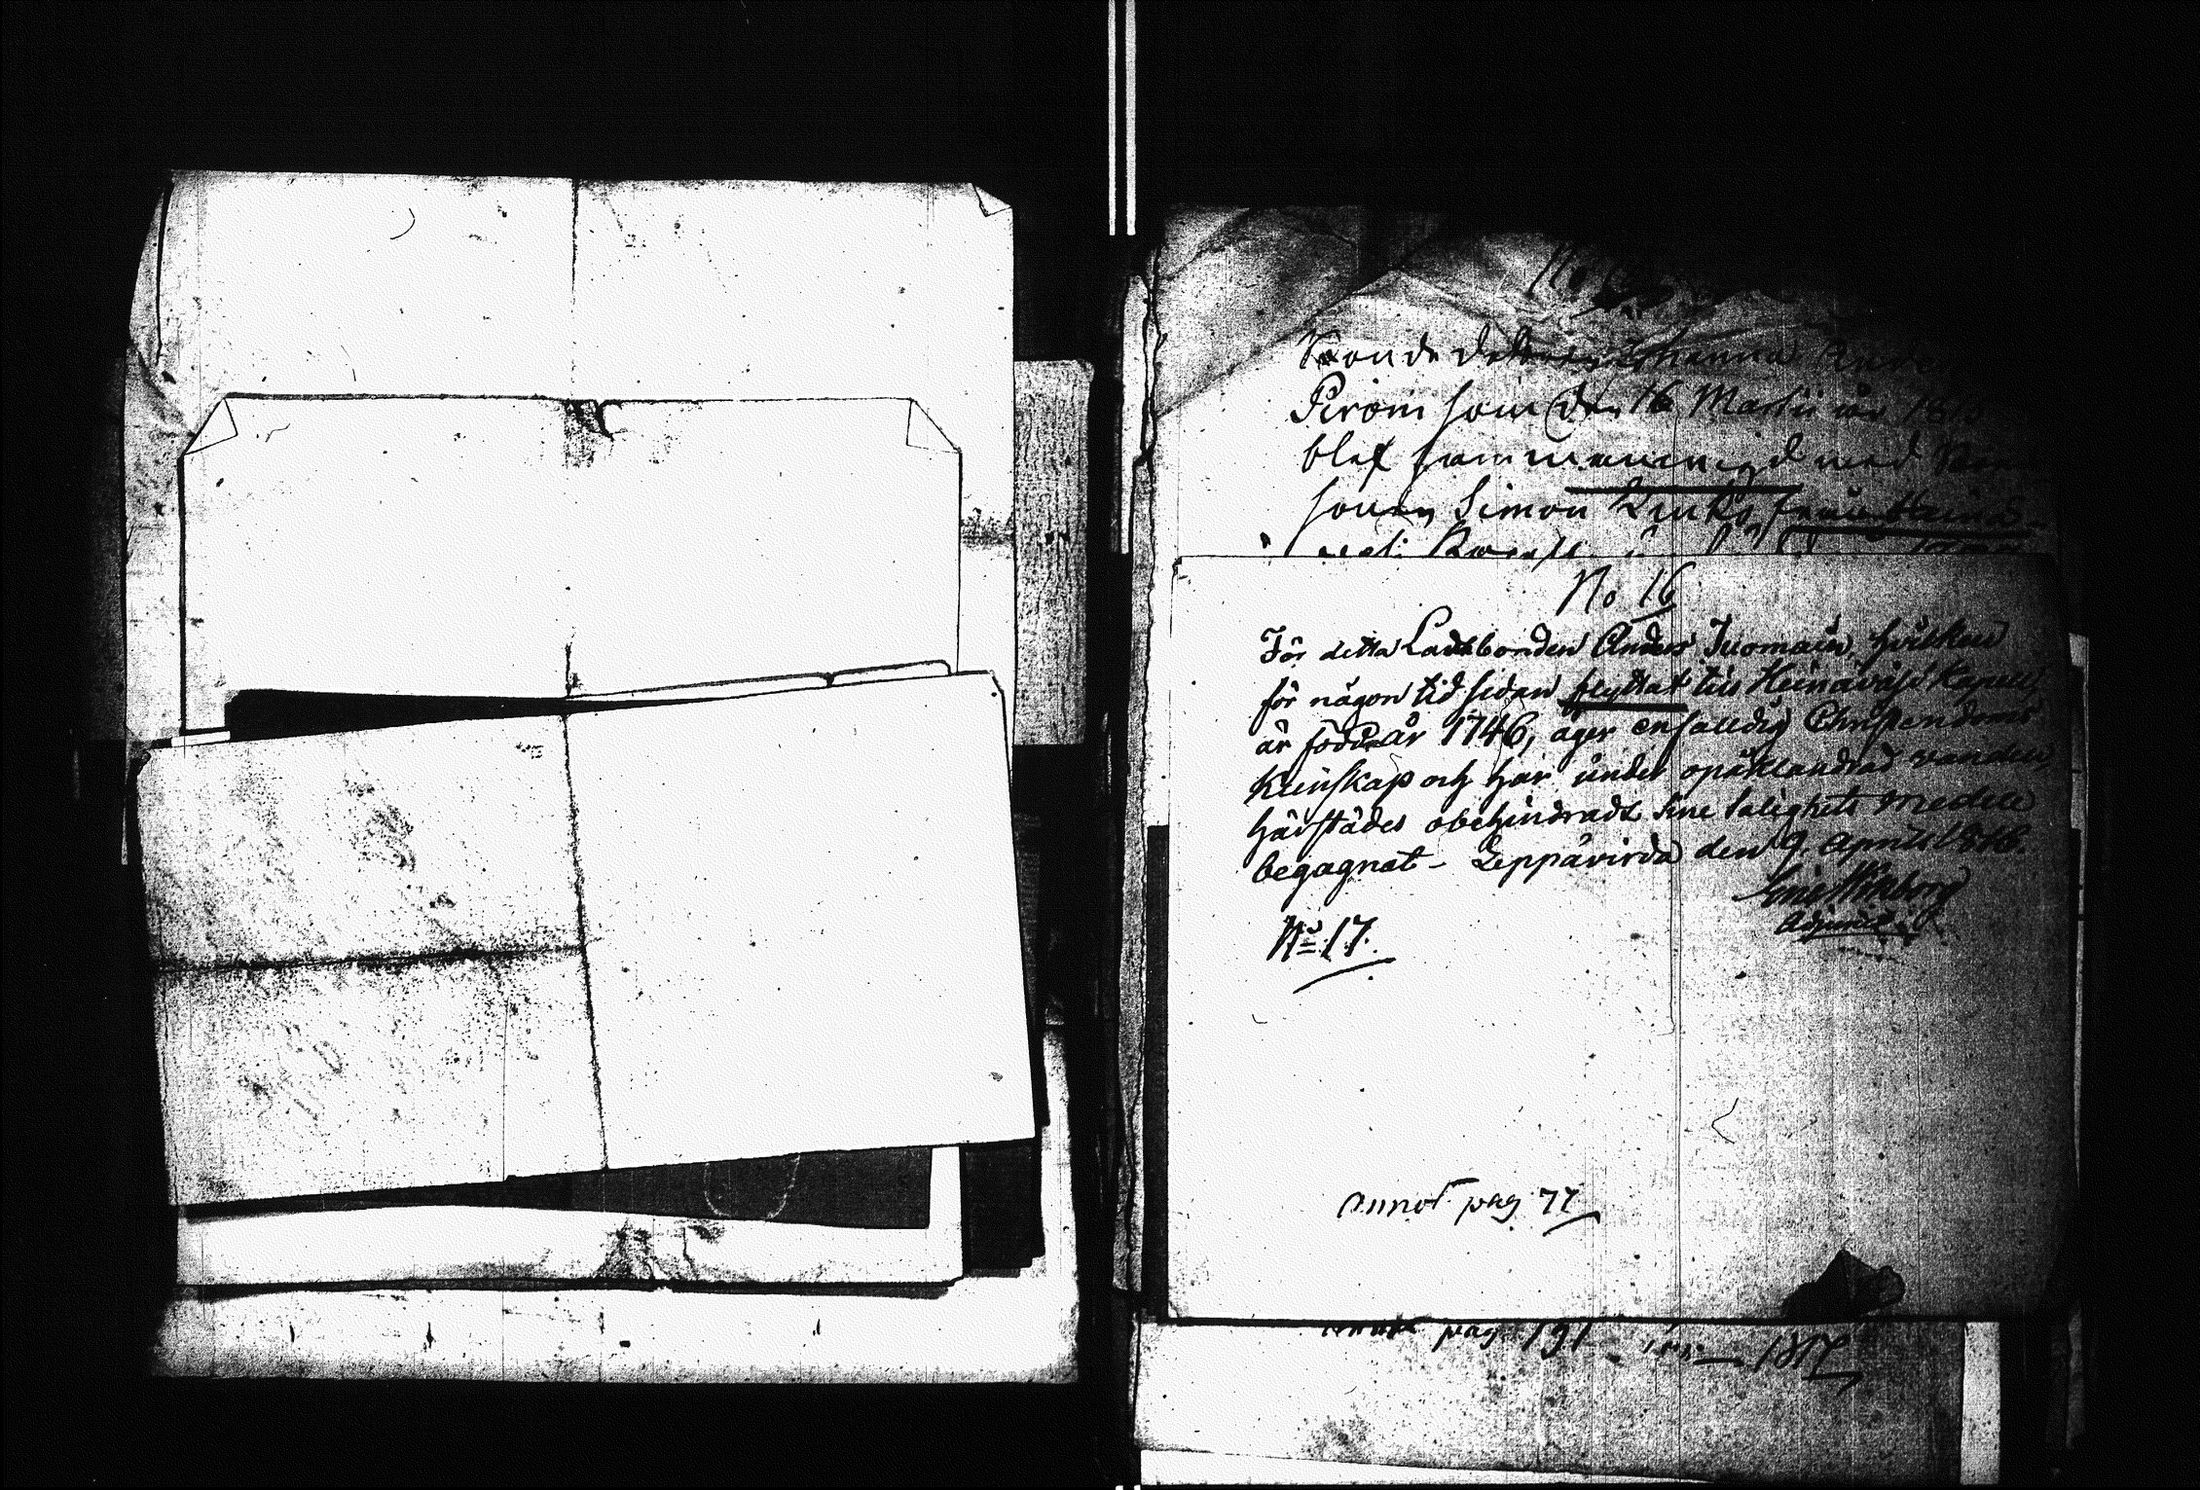 Bonde dottren Anna
Piroin som den 16 Martii år 18
blef sammanwigd med
sonen Simon från Heinä-
No 16
För detta Landbonden Anders Tuomain, hvilken
för någon tid sedan flyttat till Heinäväsi Kapell,
är född år 1746, äger enfalldig Christendoms
kunskap och har under opåklandrad vandel
härstädes obehindradt sine salighets medel
begagnat - Leppävirda den 9 April 1816.
Adjunct
No 17.
annot pag 77
annot pag 191 1817